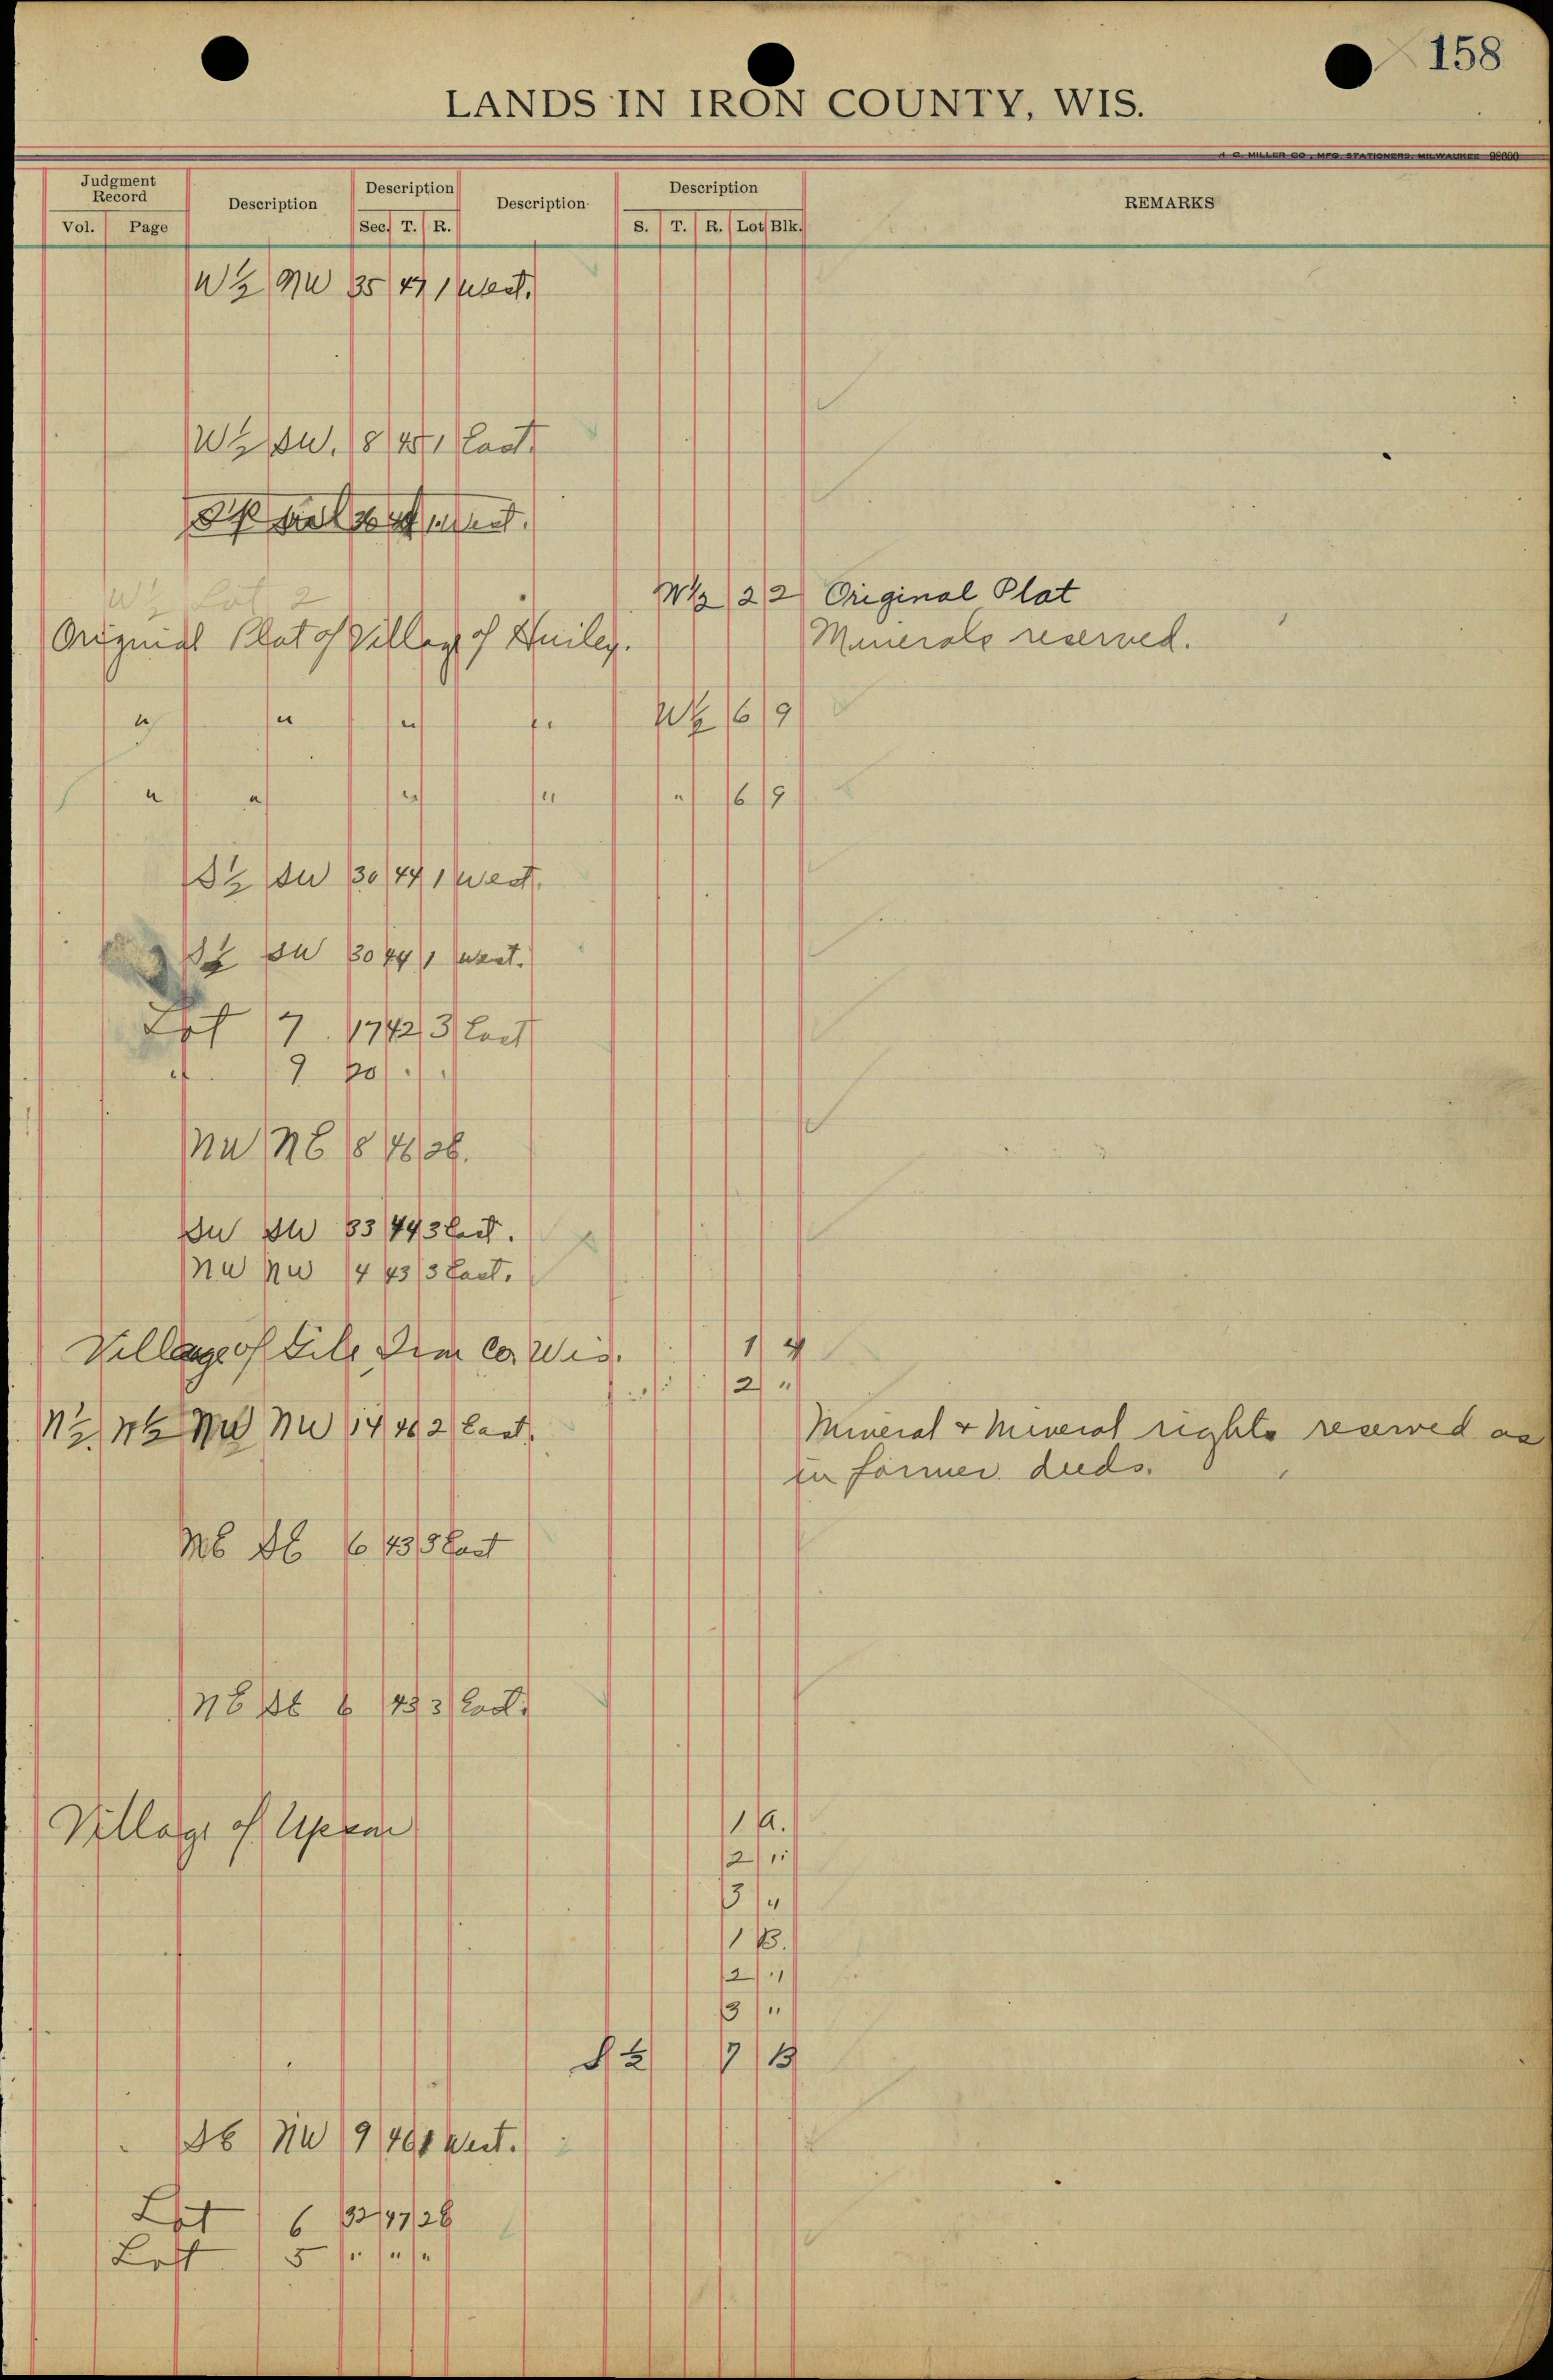 158
LANDS IN IRON COUNTY, WIS.
H. C. MILLER CO., MFG. STATIONERS, MILWAUKEE 98600
Judgment Record Description Description Description Description REMARKS
Vol. Page Sec. T. R. S. T. R. Lot Blk.
W½ NW 35 47 1 West.
W½ SW. 8 45 1 East.
W½ Lot 2 W½ 2 2 Original Plat
Original Plat of Village of Hurley. Minerals reserved.
" " " " W½ 6 9
" " " " " 6 9
S½ SW 30 44 1 West.
S½ SW 30 44 1 West.
Lot 7 17 42 3 East
" 9 20 " "
NW NE 8 46 2E.
SW SW 33 44 3 East.
NW NW 4 43 3 East.
Village of Gile Iron Co. Wis. 1 4
2 "
N½ N½ NW NW 14 46 2 East. Mineral & Mineral rights reserved as
in former deeds.
NE SE 6 43 3 East
NE SE 6 43 3 East.
Village of Upson 1 A.
2 "
3 "
1 B.
2 "
3 "
S½ 7 B
SE NW 9 46 1 West.
Lot 6 32 47 2E
Lot 5 " " "